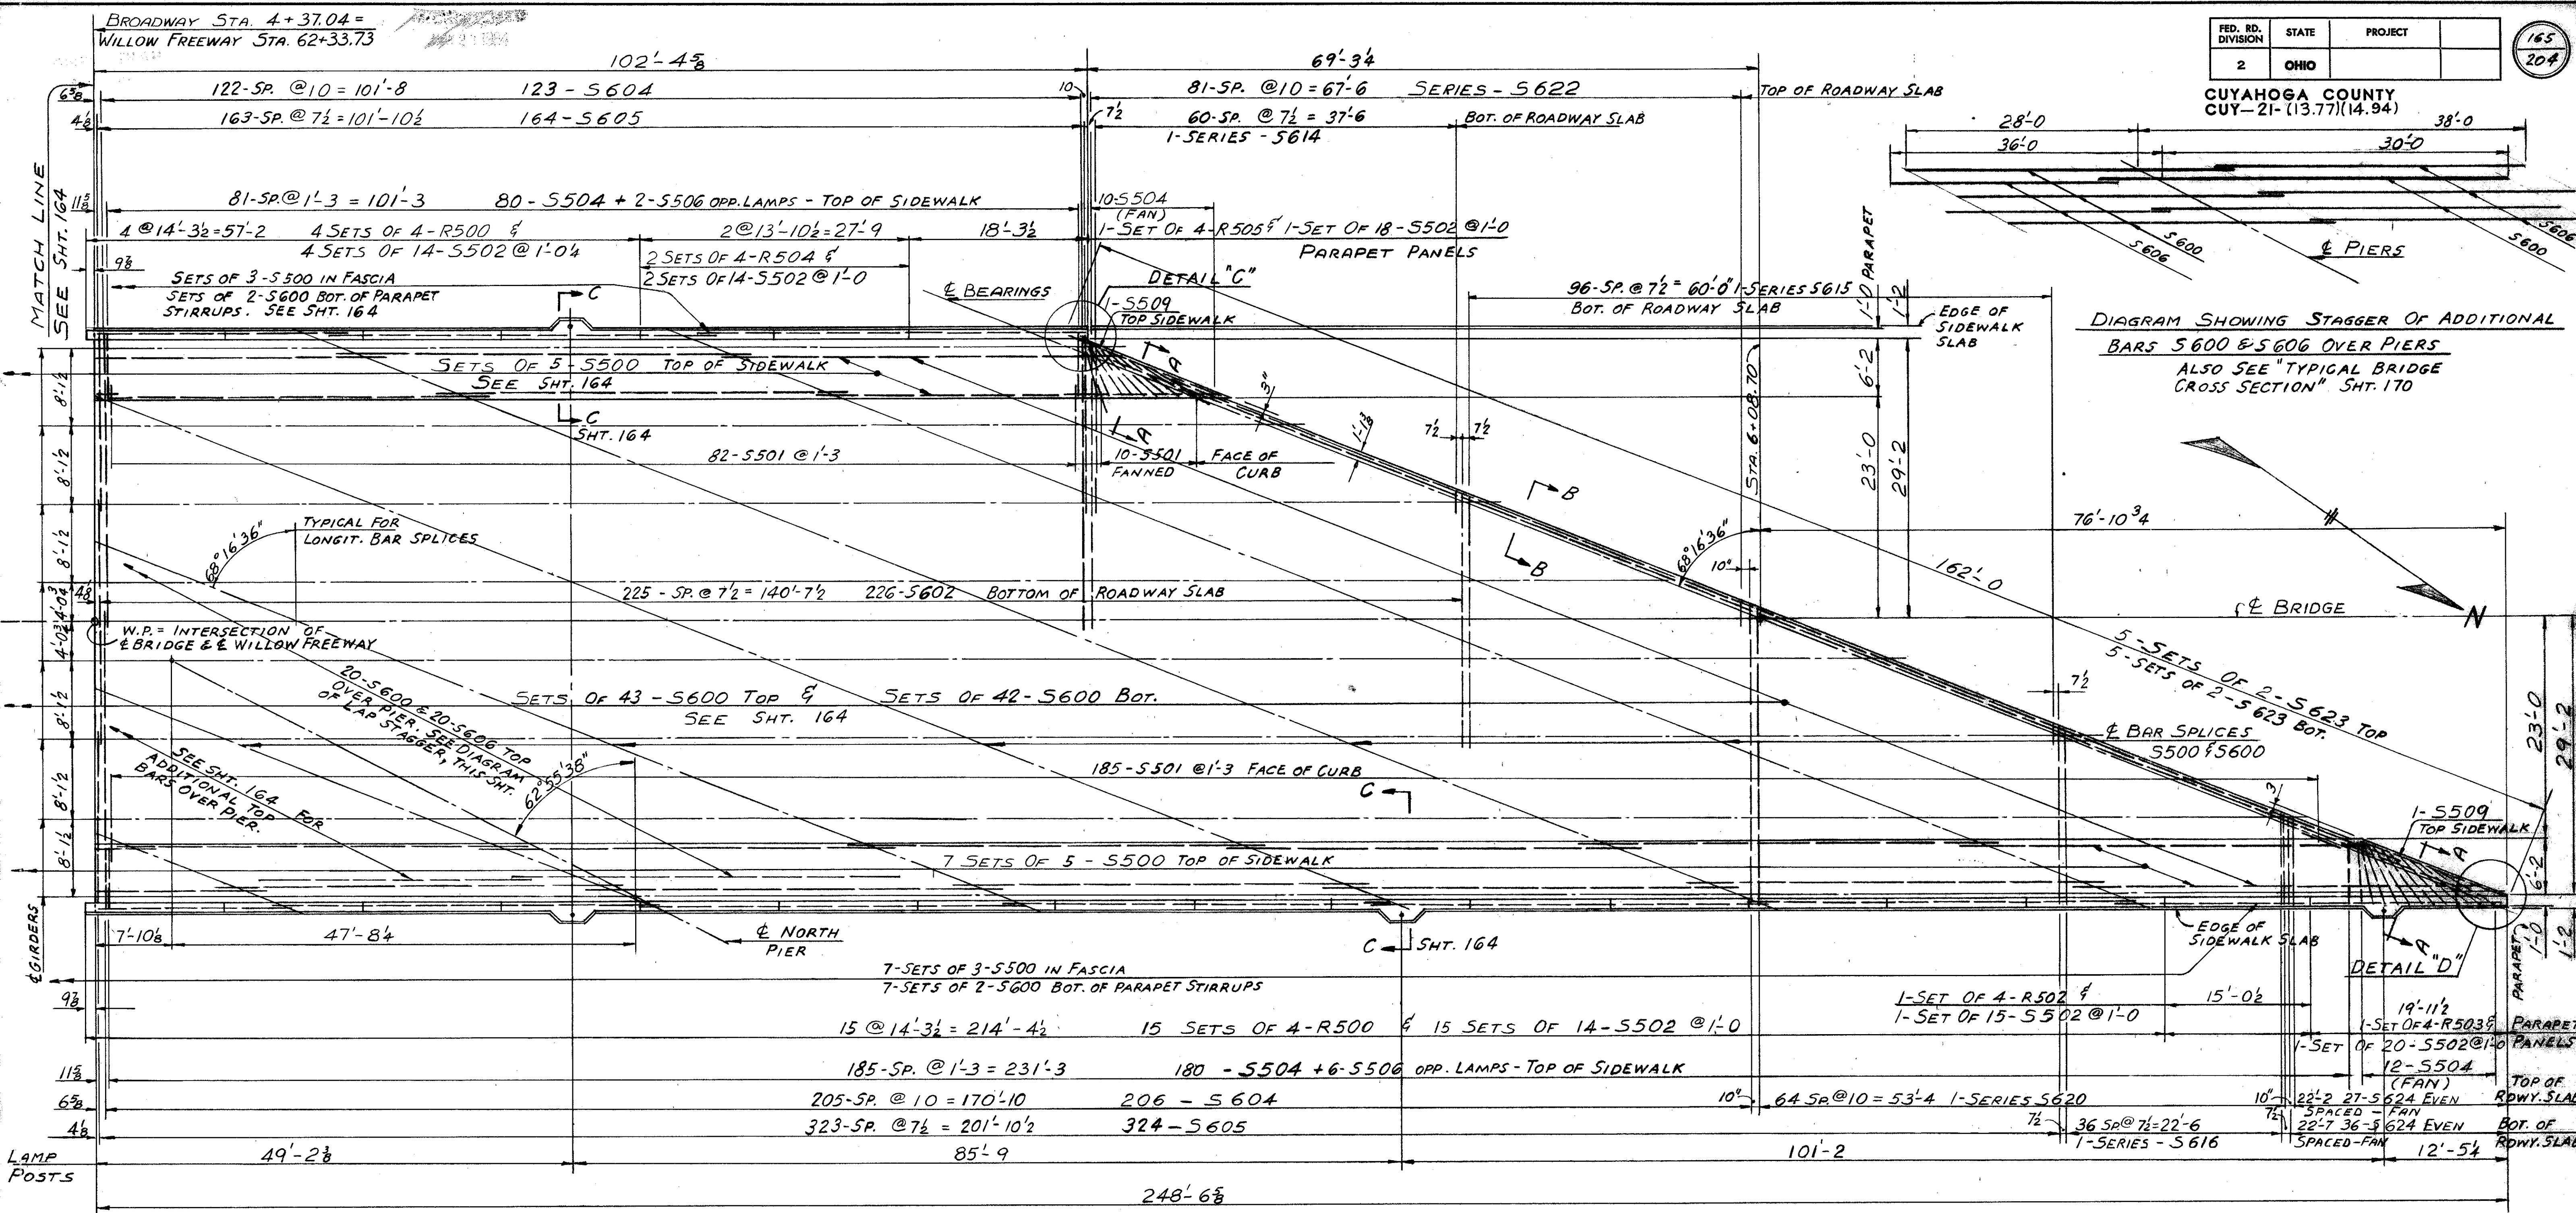 BROADWAY STA. 4+37.04 =
WILLOW FREEWAY STA. 62+33.73
FED. RD. DIVISION STATE PROJECT
2 OHIO
165
204
CUYAHOGA COUNTY
CUY-21-(13.77)(14.94)
102'-4 5/8
69'-3 1/4
6 5/8
122-SP. @10 = 101'-8 123 - S604
10
81-SP. @10 = 67'-6 SERIES - S622
TOP OF ROADWAY SLAB
4 1/8
163-SP. @ 7 1/2 = 101'-10 1/2 164 - S605
7 1/2
60-SP. @ 7 1/2 = 37'-6
BOT. OF ROADWAY SLAB
1-SERIES - S614
MATCH LINE
SEE SHT. 164
28'-0
38'-0
36'-0
30'-0
S606
S600
S606
S600
S600
₵ PIERS
11 5/8
81-SP. @ 1'-3 = 101'-3 80 - S504 + 2-S506 OPP. LAMPS - TOP OF SIDEWALK
10-S504
(FAN)
4 @ 14'-3 1/2 = 57'-2 4 SETS OF 4-R500 &
4 SETS OF 14-S502 @ 1'-0 1/4
2 @ 13'-10 1/2 = 27'-9
18'-3 1/2
1-SET OF 4-R505 & 1-SET OF 18-S502 @ 1'-0
PARAPET PANELS
2 SETS OF 4-R504 &
2 SETS OF 14-S502 @ 1'-0
9 7/8
SETS OF 3-S500 IN FASCIA
SETS OF 2-S600 BOT. OF PARAPET
STIRRUPS. SEE SHT. 164
C
₵ BEARINGS
DETAIL "C"
1-S509
TOP SIDEWALK
96-SP. @ 7 1/2 = 60'-0" 1-SERIES S615
BOT. OF ROADWAY SLAB
1'-0 PARAPET
1'-2
EDGE OF
SIDEWALK
SLAB
DIAGRAM SHOWING STAGGER OF ADDITIONAL
BARS S600 & S606 OVER PIERS
ALSO SEE "TYPICAL BRIDGE
CROSS SECTION" SHT. 170
SETS OF 5-S500 TOP OF SIDEWALK
SEE SHT. 164
C
SHT. 164
A
A
3"
1'-1 3/8
6'-2
23'-0
29'-2
8'-1 1/2
8'-1 1/2
8'-1 1/2
4'-0 3/4
4'-0 3/4
8'-1 1/2
8'-1 1/2
8'-1 1/2
82-S501 @ 1'-3
10-S501
FANNED
FACE OF
CURB
7 1/2
7 1/2
B
B
STA. 6+08.70
76'-10 3/4
TYPICAL FOR
LONGIT. BAR SPLICES
68°16'36"
68°16'36"
10"
162'-0
4 1/8
225 - SP. @ 7 1/2 = 140'-7 1/2 226-S602 BOTTOM OF ROADWAY SLAB
₵ BRIDGE
N
W.P. = INTERSECTION OF
₵ BRIDGE & ₵ WILLOW FREEWAY
20-S600 & 20-S606 TOP
OVER PIER. SEE DIAGRAM
OF LAP STAGGER, THIS SHT.
SETS OF 43 - S600 TOP & SETS OF 42-S600 BOT.
SEE SHT. 164
7 1/2
5-SETS OF 2-S623 TOP
5-SETS OF 2-S623 BOT.
23'-0
29'-2
SEE SHT. 164 FOR
ADDITIONAL TOP
BARS OVER PIER.
62°55'38"
₵ BAR SPLICES
S500 & S600
185-S501 @ 1'-3 FACE OF CURB
C
3
1-S509
TOP SIDEWALK
A
7 SETS OF 5 - S500 TOP OF SIDEWALK
6'-2
₵ GIRDERS
7'-10 1/8
47'-8 1/4
₵ NORTH
PIER
C
SHT. 164
EDGE OF
SIDEWALK SLAB
A
DETAIL "D"
PARAPET
1'-0
1'-2
7-SETS OF 3-S500 IN FASCIA
7-SETS OF 2-S600 BOT. OF PARAPET STIRRUPS
9 7/8
1-SET OF 4-R502 &
1-SET OF 15-S502 @ 1'-0
15'-0 1/2
19'-11 1/2
15 @ 14'-3 1/2 = 214'-4 1/2 15 SETS OF 4-R500 & 15 SETS OF 14-S502 @ 1'-0
1-SET OF 4-R503 &
1-SET OF 20-S502 @ 1'-0
PARAPET
PANELS
11 5/8
185-SP. @ 1'-3 = 231'-3 180 - S504 + 6-S506 OPP. LAMPS - TOP OF SIDEWALK
12-S504
(FAN)
6 5/8
205-SP. @ 10 = 170'-10 206 - S604
10"
64 SP. @ 10 = 53'-4 1-SERIES S620
10"
22'-2 27-S624 EVEN
SPACED - FAN
TOP OF
RDWY. SLAB
4 1/8
323-SP. @ 7 1/2 = 201'-10 1/2 324-S605
7 1/2
36 SP. @ 7 1/2 = 22'-6
1-SERIES - S616
7 1/2
22'-7 36-S624 EVEN
SPACED-FAN
BOT. OF
RDWY. SLAB
LAMP
POSTS
49'-2 3/8
85'-9
101'-2
12'-5 1/4
248'-6 5/8